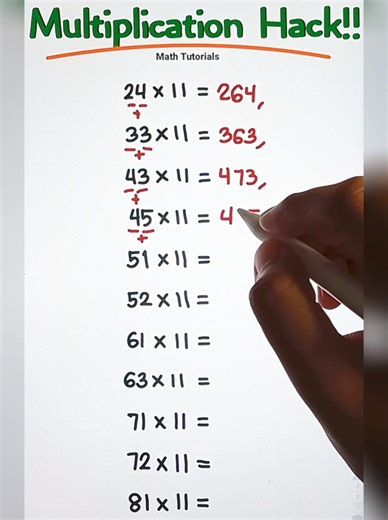 Multiplication Hack!!
Math Tutorials
24 × 11 = 264,
+
33 × 11 = 363,
+
43 × 11 = 473,
+
45 × 11 = 4
+
51 × 11 =
52 × 11 =
61 × 11 =
63 × 11 =
71 × 11 =
72 × 11 =
81 × 11 =